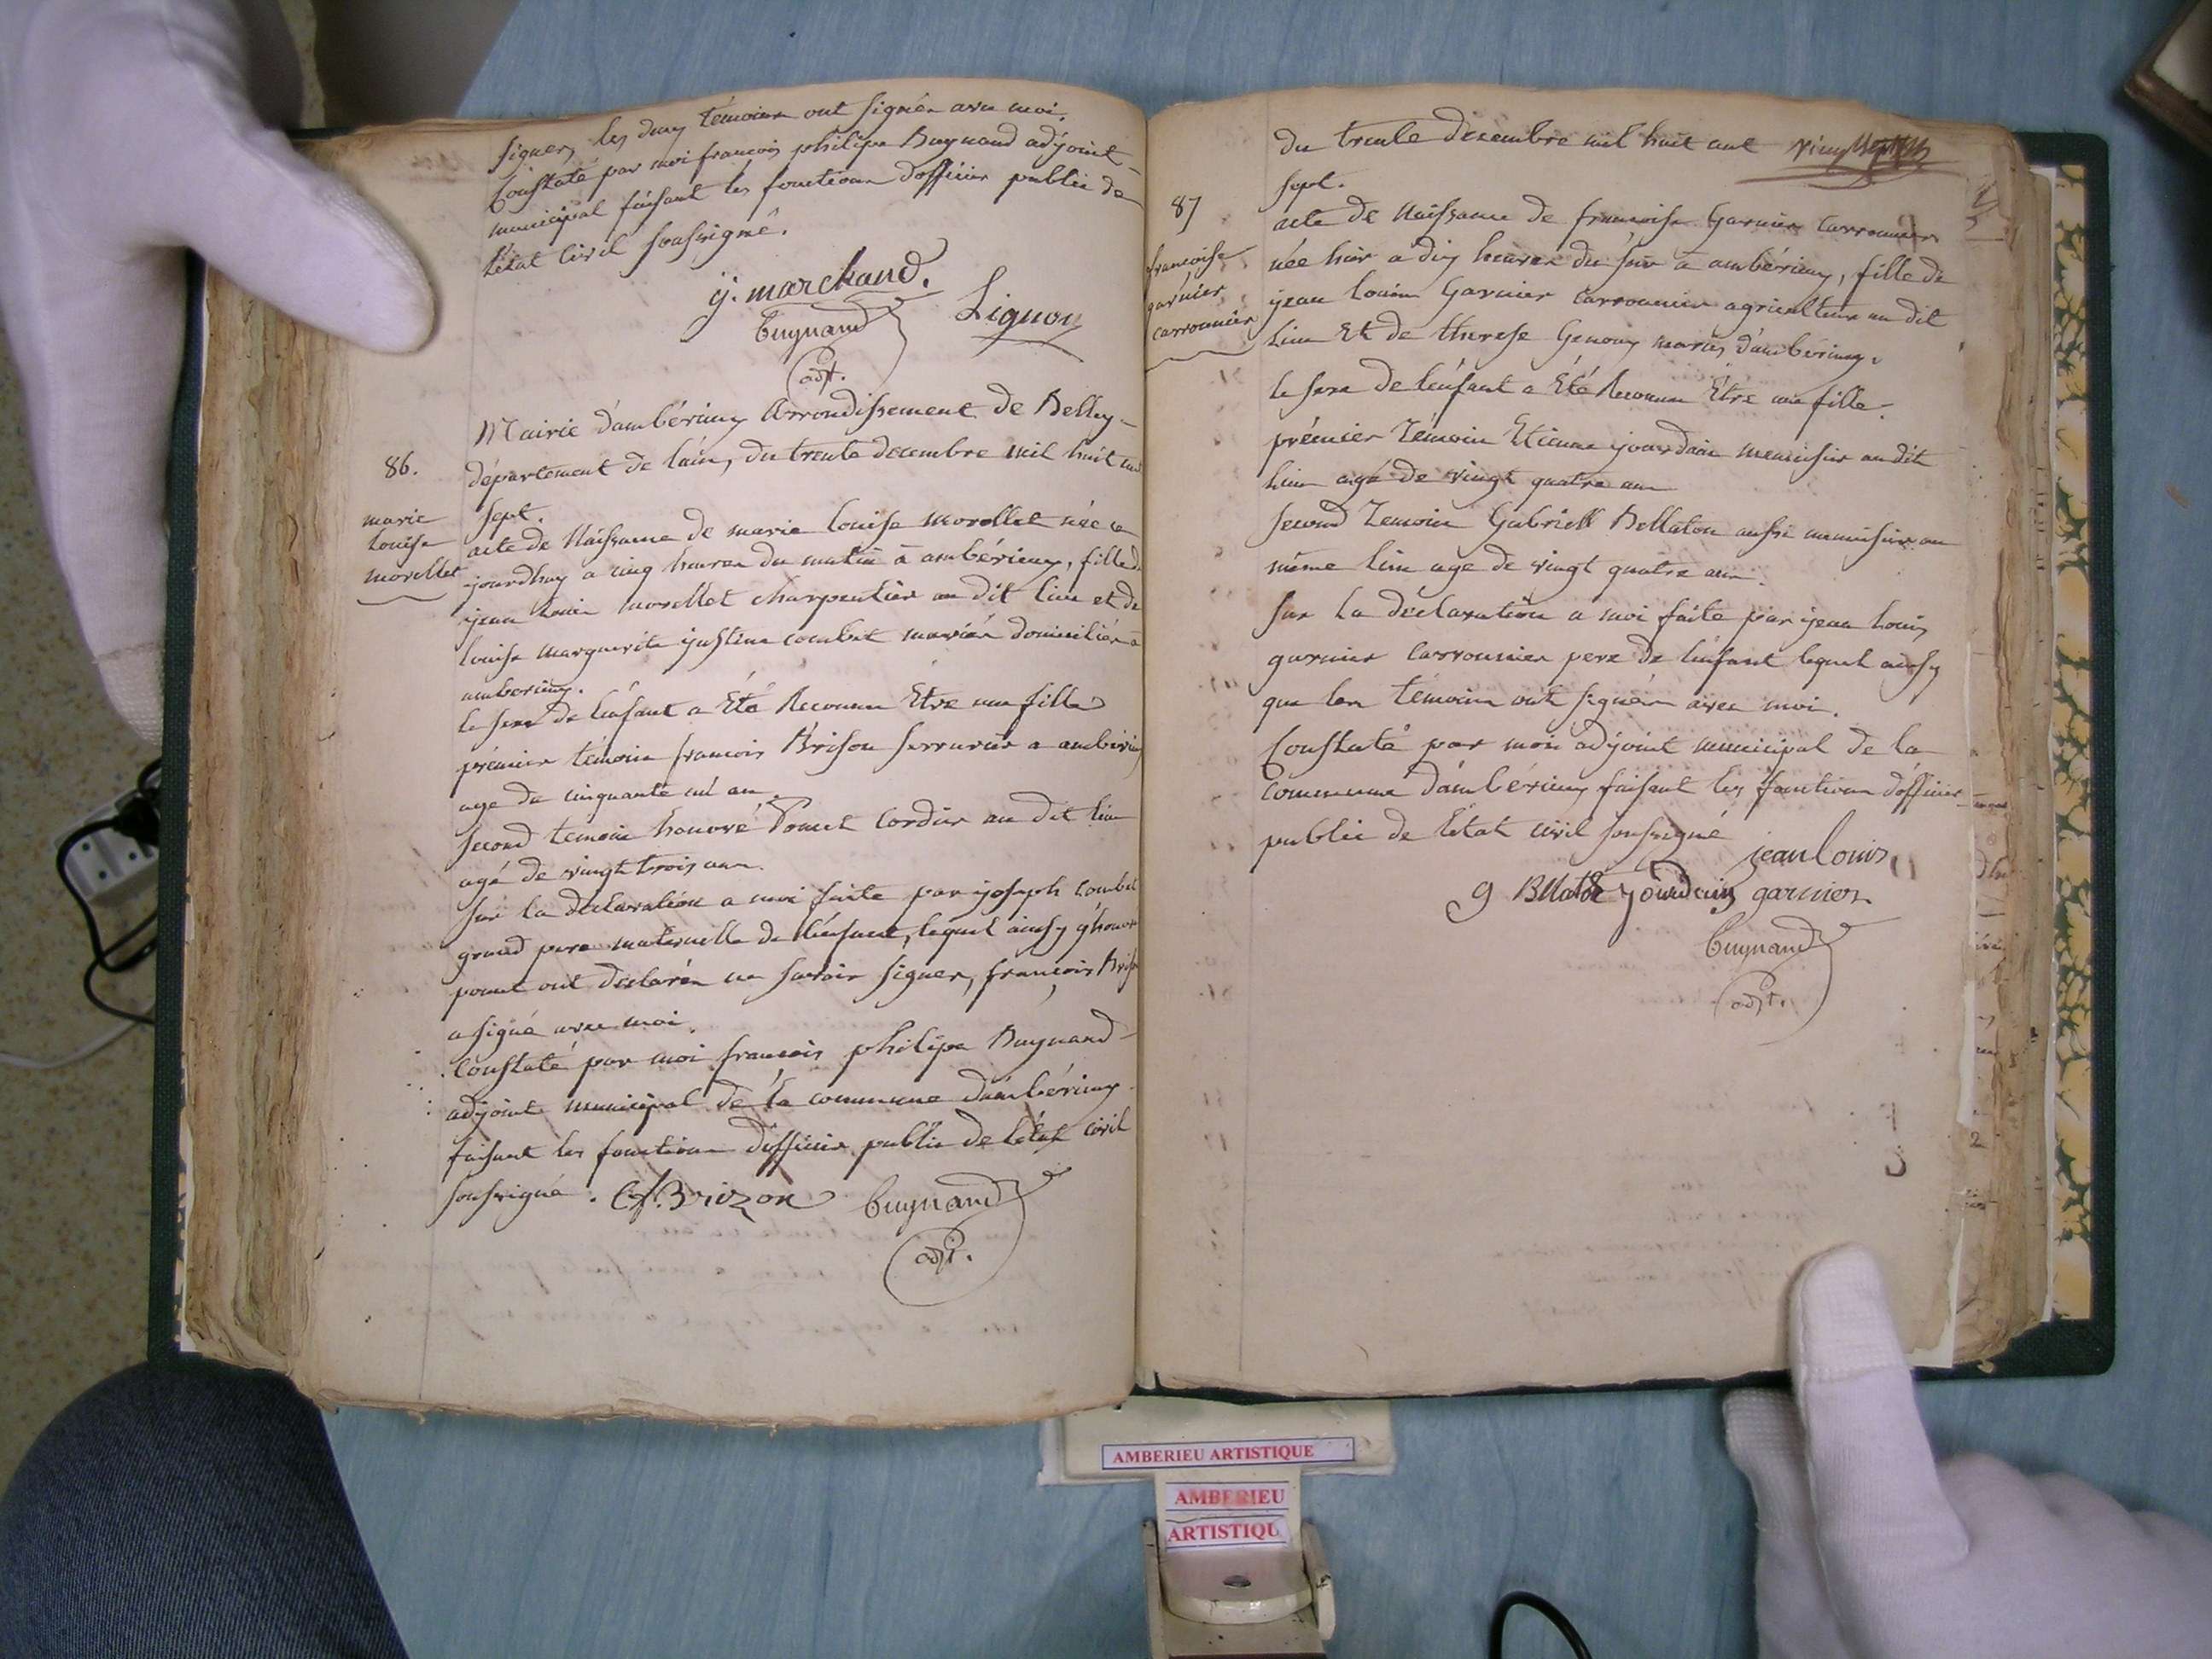 signer, les deux témoins ont signés avec moi.
Constaté par moi francois philipe Buynand adjoint
municipal faisant les fonctions dofficier public de
l'état Civil soussigné.
j. marchand.
Lignon
buynand
adjt.
Mairie d'ambérieux Arrondissement de Belley
86.
département de l'ain, du trente decembre mil huit cent
sept.
marie
louise
morellet
acte de Naissance de marie louise morellet née ce
jourdhuy a cinq heures du matin à ambérieux, fille de
jean louis morellet charpentier au dit lieu et de
louise marguerite justine combet mariés domiciliés a
amberieux.
le sexe de l'enfant a Eté Reconnu Etre une fille
prémier témoin francois Brison serrurier a ambérieux
age de cinquante six ans.
second temoin honoré Pomet Cordier au dit lieu
agé de vingt trois ans.
sur la déclaration a moi faite par joseph Combet
grand pere maternelle de l'enfant, lequel ainsy q'honoré
pomet ont déclarés ne savoir signer, francois Brison
a signé avec moi.
Constaté par moi francois philipe Buynand
adjoint municipal de la commune d'ambérieux
faisant les fonctions d'officier public de l'état civil
soussigné. Cf. Brizon buynand
adjt.
du trente decembre mil huit cent
sept.
87
francoise
garnier
carronnier
acte de Naissance de francoise Garnier Carronnier
née hier a dix heures du soir a ambérieux, fille de
jean louis Garnier Carronnier agriculteur au dit
lieu Et de therese Genoux mariés d'ambérieux.
le sexe de l'enfant a Eté Reconnu Etre une fille.
prémier Témoin Etienne jourdain menuisier au dit
lieu agé de vingt quatre ans
second Temoin Gabriell Bellaton aussi menuisier au
même lieu age de vingt quatre ans.
sur la déclaration a moi faite par jean louis
garnier Carronnier pere de l'enfant lequel ainsy
que les témoins ont signés avec moi.
Constaté par moi adjoint municipal de la
Commune d'ambérieux faisant les fonctions d'officier
public de l'état civil soussigné
jean louis
g Bllatoe jourdain garnier
buynand
adjt.
AMBERIEU ARTISTIQUE
AMBERIEU
ARTISTIQU